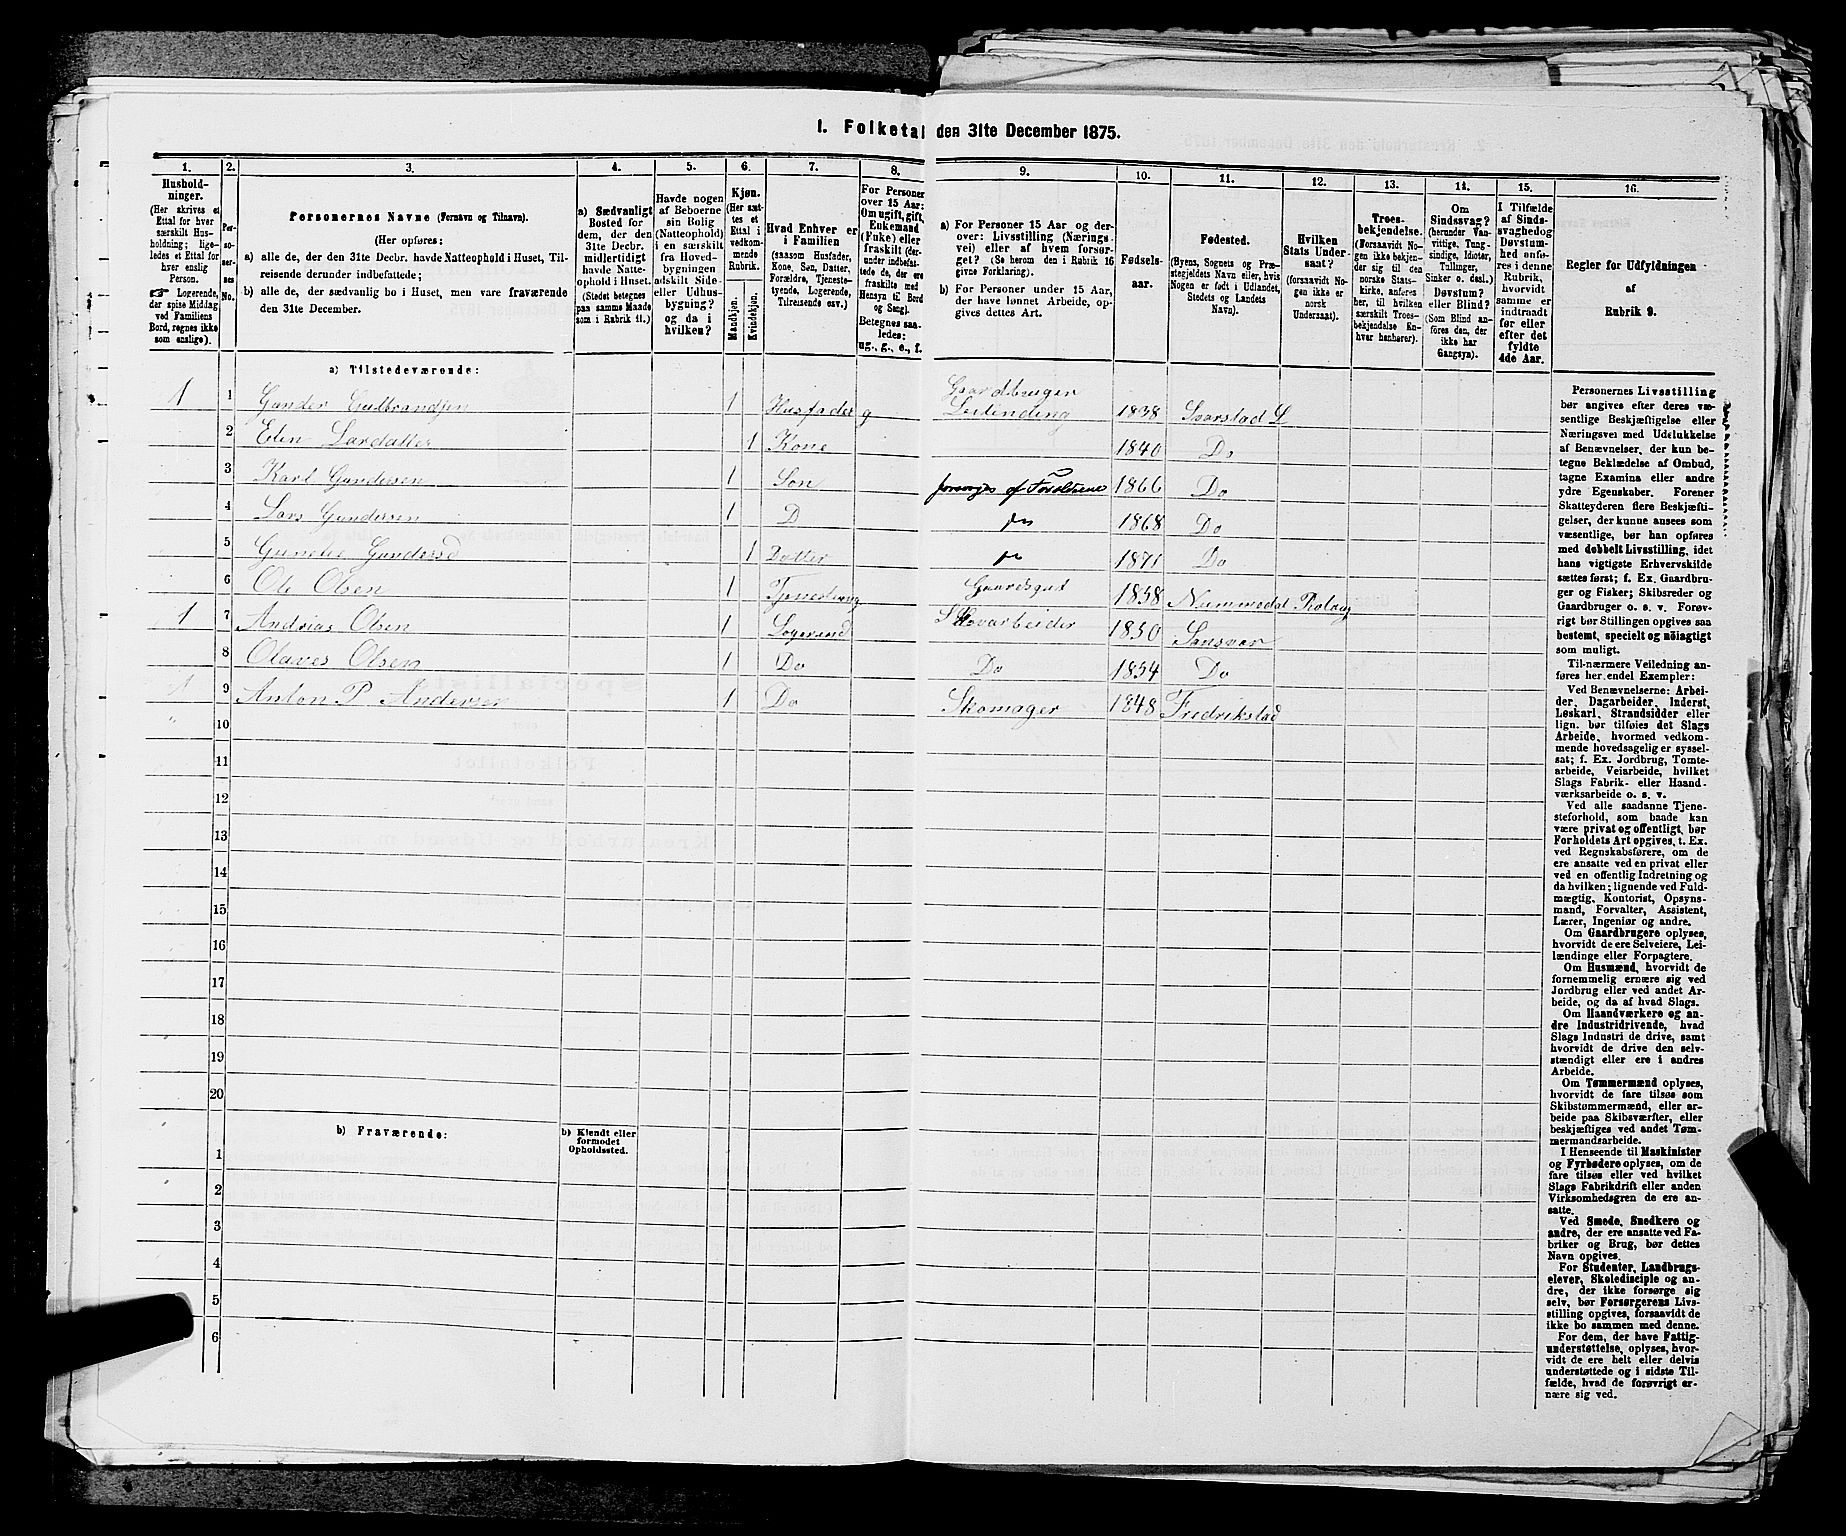 1. Folketal den 31te December 1875.
1.
Hushold-
ninger.
(Her skrives et
Ettal for hver
særskilt Hus-
holdning; lige-
ledes et Ettal for
hver enslig
Person.
Logerende,
der spise Middag
ved Familiens
Bord, regnes ikke
som enslige).
2.
Per-
so-
ner-
nes
No.
3.
Personernes Navne (Fornavn og Tilnavn).
(Her opføres:
a) alle de, der den 31te Decbr. havde Natteophold i Huset, Til-
reisende derunder indbefattede;
b) alle de, der sædvanlig bo i Huset, men vare fraværende
den 31te December.
4.
a) Sædvanligt
Bosted for
dem, der den
31te Decbr.
midlertidigt
havde Natte-
ophold i Huset.
(Stedet betegnes
paa samme Maade
som i Rubrik 11.)
5.
Havde nogen
af Beboerne
sin Bolig
(Natteophold)
i en særskilt
fra Hoved-
bygningen
adskilt Side-
eller Udhus-
bygning?
og da i
hvilken?
6.
Kjøn.
(Her sæt-
tes et
Ettal i
vedkom-
mende
Rubrik.
Mandkjøn.
Kvindekjøn.
7.
Hvad Enhver er
i Familien
(saasom Husfader,
Kone, Søn, Datter,
Forældre, Tjeneste-
tyende, Logerende,
Tilreisende osv.)
8.
For Personer
over 15 Aar:
Om ugift, gift,
Enkemand
(Fuke) eller
fraskilt (der-
under indbefat-
tede de, der ere
fraskilte med
Hensyn til Bord
og Sæng).
Betegnes saa-
ledes:
ug., g., e., f.
9.
a) For Personer 15 Aar og der-
over: Livsstilling (Nærings-
vei) eller af hvem forsør-
get? (Se herom den i Rubrik 16
givne Forklaring).
b) For Personer under 15 Aar,
der have lønnet Arbeide, op-
gives dettes Art.
10.
Fødsels-
aar.
11.
Fødested.
(Byens, Sognets og Præ-
stegjeldets Navn eller, hvis
Nogen er født i Udlandet,
Stedets og Landets
Navn).
12.
Hvilken
Stats Under-
saat?
(forsaavidt No-
gen ikke er
norsk
Undersaat).
13.
Troes-
bekjendelse.
(Forsaavidt No-
gen ikke bekjen-
der sig til den
norske Stats-
kirke, anføres
her, til hvilken
særskilt Troes-
bekjendelse En-
hver henhører).
14.
Om
Sindssvag?
(herunder Van-
vittige, Tung-
sindige, Idioter,
Tullinger,
Sinker o. desl.)
Døvstum?
eller Blind?
(Som Blind an-
føres den, der
ikke har
Gangsyn).
15.
I Tilfælde
af Sinds-
svaghed og
Døvstum-
hed anfø-
res i denne
Rubrik,
hvorvidt
samme er
indtraadt
før eller
efter det
fyldte
4de Aar.
16.
Regler for Udfyldningen
af
Rubrik 9.
a) Tilstedeværende:
1 1 Gunder Gulbrandsen 1 Husfader g Gaardbruger
Leilending 1838 Svarstad L
2 Elen Larsdatter 1 Kone 1840 Do
3 Karl Gundersen 1 Søn forsørges af Forældrene 1866 Do
4 Lars Gundersen 1 D 1868 Do
5 Gunelie Gundersd 1 Datter 1871 Do
6 Ole Olsen 1 Gaardsgut 1858 Nummedal Rolaug
1 7 Andrias Olsen 1 Logerend Skovarbeider 1850 Sansvær
8 Olaves Olsen 1 Do Do 1854 Do
1 9 Anton P Andersen 1 Do Skomager 1848 Fredrikstad
10
11
12
13
14
15
16
17
18
19
20
b) Fraværende:
b) Kjendt eller
formodet
Opholdssted.
1
2
3
4
5
6
Personernes Livsstilling
bør angives efter deres væ-
sentlige Beskjæftigelse eller
Næringsvei med Udelukkelse
af Benævnelser, der kun be-
tegne Beklædelse af Ombud,
tagne Examina eller andre
ydre Egenskaber. Forener
Skatteyderen flere Beskjæfti-
gelser, der kunne ansees som
væsentlige, bør han opføres
med dobbelt Livsstilling, idet
hans vigtigste Erhvervskilde
sættes først; f. Ex. Gaardbru-
ger og Fisker; Skibsreder og
Gaardbruger o. s. v. Forøv-
rigt bør Stillingen opgives saa
bestemt, specielt og nöiagtigt
som muligt.
Til nærmere Veiledning an-
føres her endel Exempler:
Ved Benævnelserne: Arbei-
der, Dagarbeider, Inderst,
Løskarl, Strandsidder eller
lign. bør tilføies det Slags
Arbeide, hvormed vedkom-
mende hovedsagelig er syssel-
sat; f. Ex. Jordbrug, Tomte-
arbeide, Veiarbeide, hvilket
Slags Fabrik- eller Haand-
værksarbeide o. s. v.
Ved alle saadanne Tjene-
steforhold, som baade kan
være privat og offentligt, bør
Forholdets Art opgives, t. Ex.
ved Regnskabsførere, om de
ere ansatte ved en privat eller
ved en offentlig Indretning og
da hvilken; lignende ved Fuld-
mægtig, Kontorist, Opsyns-
mand, Forvalter, Assistent,
Lærer, Ingeniør og andre.
Om Gaardbrugere oplyses,
hvorvidt de ere Selveiere, Lei-
lændinge eller Forpagtere.
Om Husmænd, hvorvidt de
fornemmelig ernære sig ved
Jordbrug eller ved andet Ar-
beide, og da af hvad Slags.
Om Haandværkere og an-
dre Industridrivende, hvad
Slags Industri de drive, samt
hvorvidt de drive den selv-
stændigt eller ere i andres
Arbeide.
Om Tømmermænd oplyses,
hvorvidt de fare tilsøs som
Skibstømmermænd, eller ar-
beide paa Skibsværfter, eller
beskjæftiges ved andet Tøm-
mermandsarbeide.
I Henseende til Maskinister
og Fyrbødere oplyses, om de
fare tilsøs eller ved hvilket
Slags Fabrikdrift eller anden
Virksomhedsgren de ere an-
satte.
Ved Smede, Snedkere og
andre, der ere ansatte ved Fa-
briker og Brug, bør dettes
Navn opgives.
For Studenter, Landbrugs-
elever, Skoledisciple og an-
dre, der ikke forsørge sig
selv, bør Forsørgerens Livs-
stilling opgives, forsaavidt de
ikke bo sammen med denne.
For dem, der have Fattig-
understøttelse, oplyses, hvor-
vidt de ere helt eller delvis
understøttede og i sidste Til-
fælde, hvad de forøvrigt er-
nære sig ved.